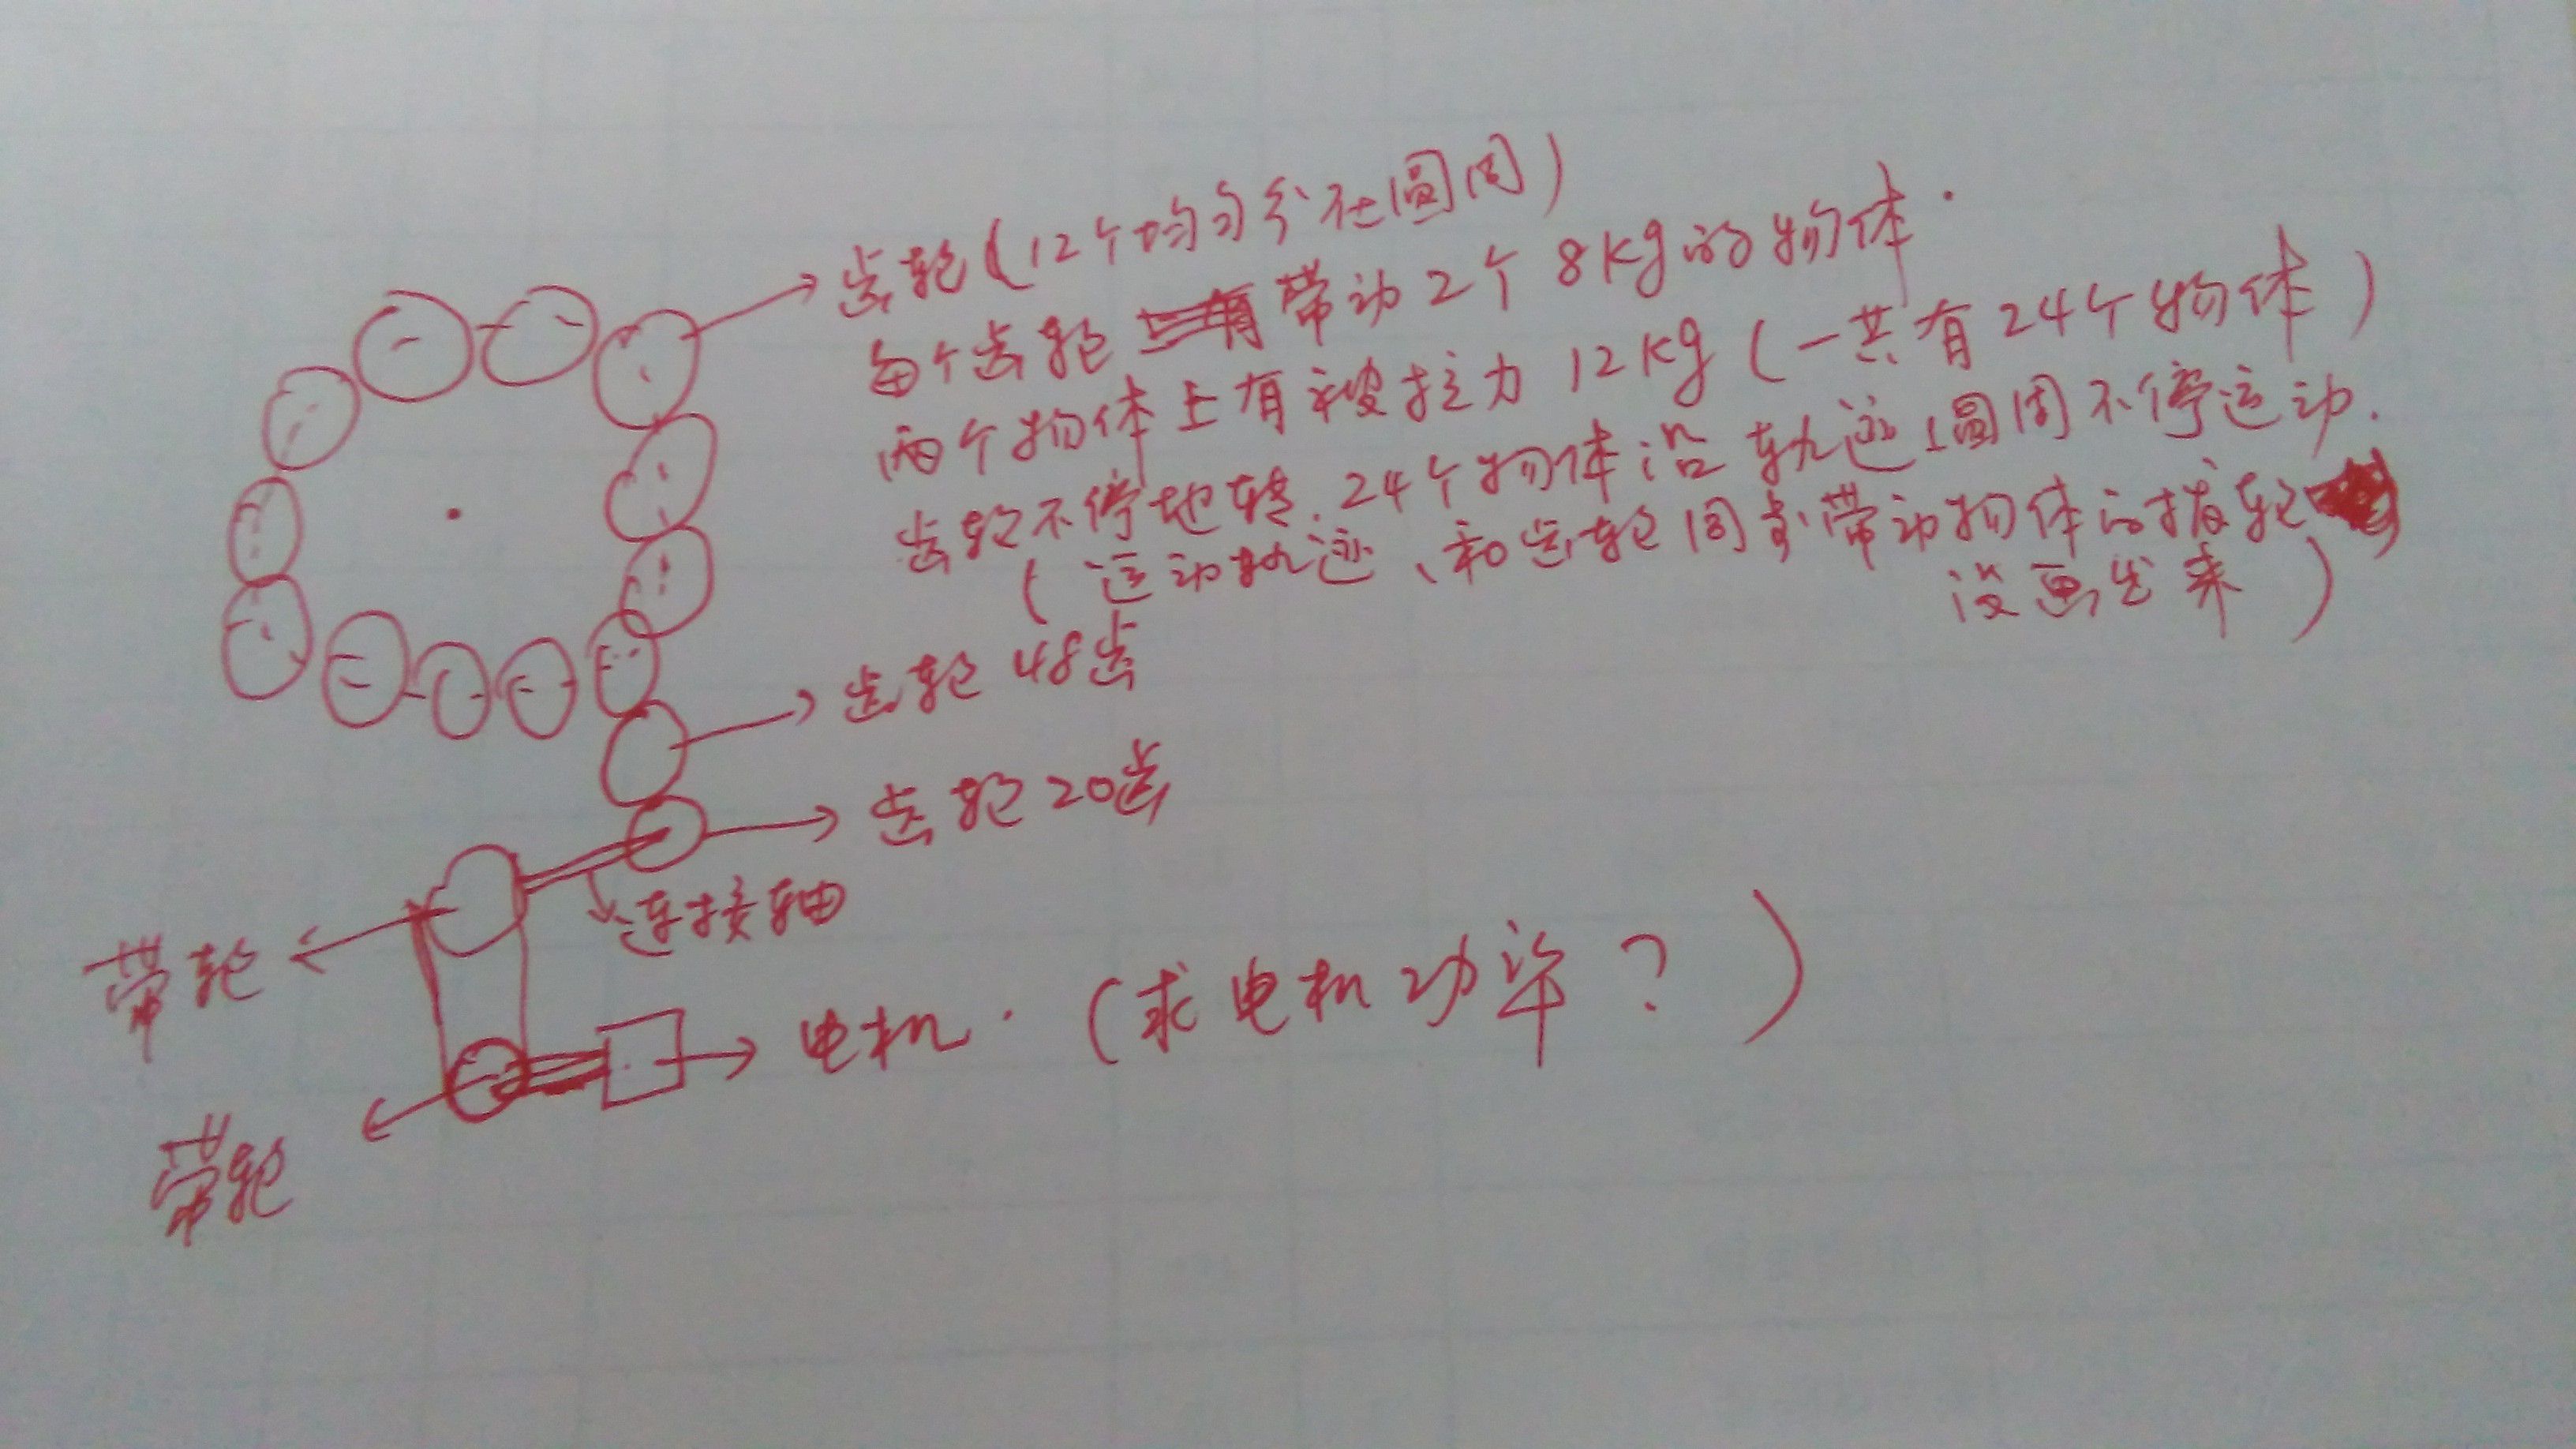 齿轮(12个均匀分在圆周)
每个齿轮 带动2个8kg的物体.
两个物体上有被拉力12kg(一共有24个物体)
齿轮不停地转.24个物体沿轨迹圆周不停运动.
(运动轨迹、和齿轮同步带动物体的拔轮
没画出来)
齿轮48齿
齿轮20齿
连接轴
带轮
电机.(求电机功率?)
带轮